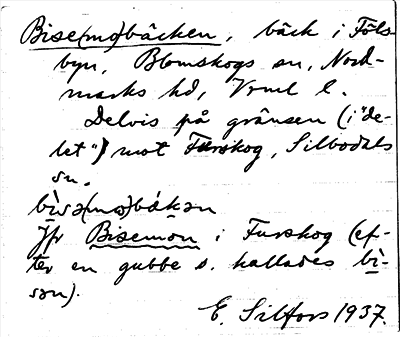 Bise(mo)bäcken, bäck i Föls-
byn, Blomskogs sn, Nord-
marks hd, Vrml l.
Delvis på gränsen (i "de-
let") mot Furskog, Silbodals
sn.
bìsə(mo)bákən
Jfr Bisemon i Furskog (ef-
ter en gubbe s. kallades bì-
sən).
E. Silfors 1937.